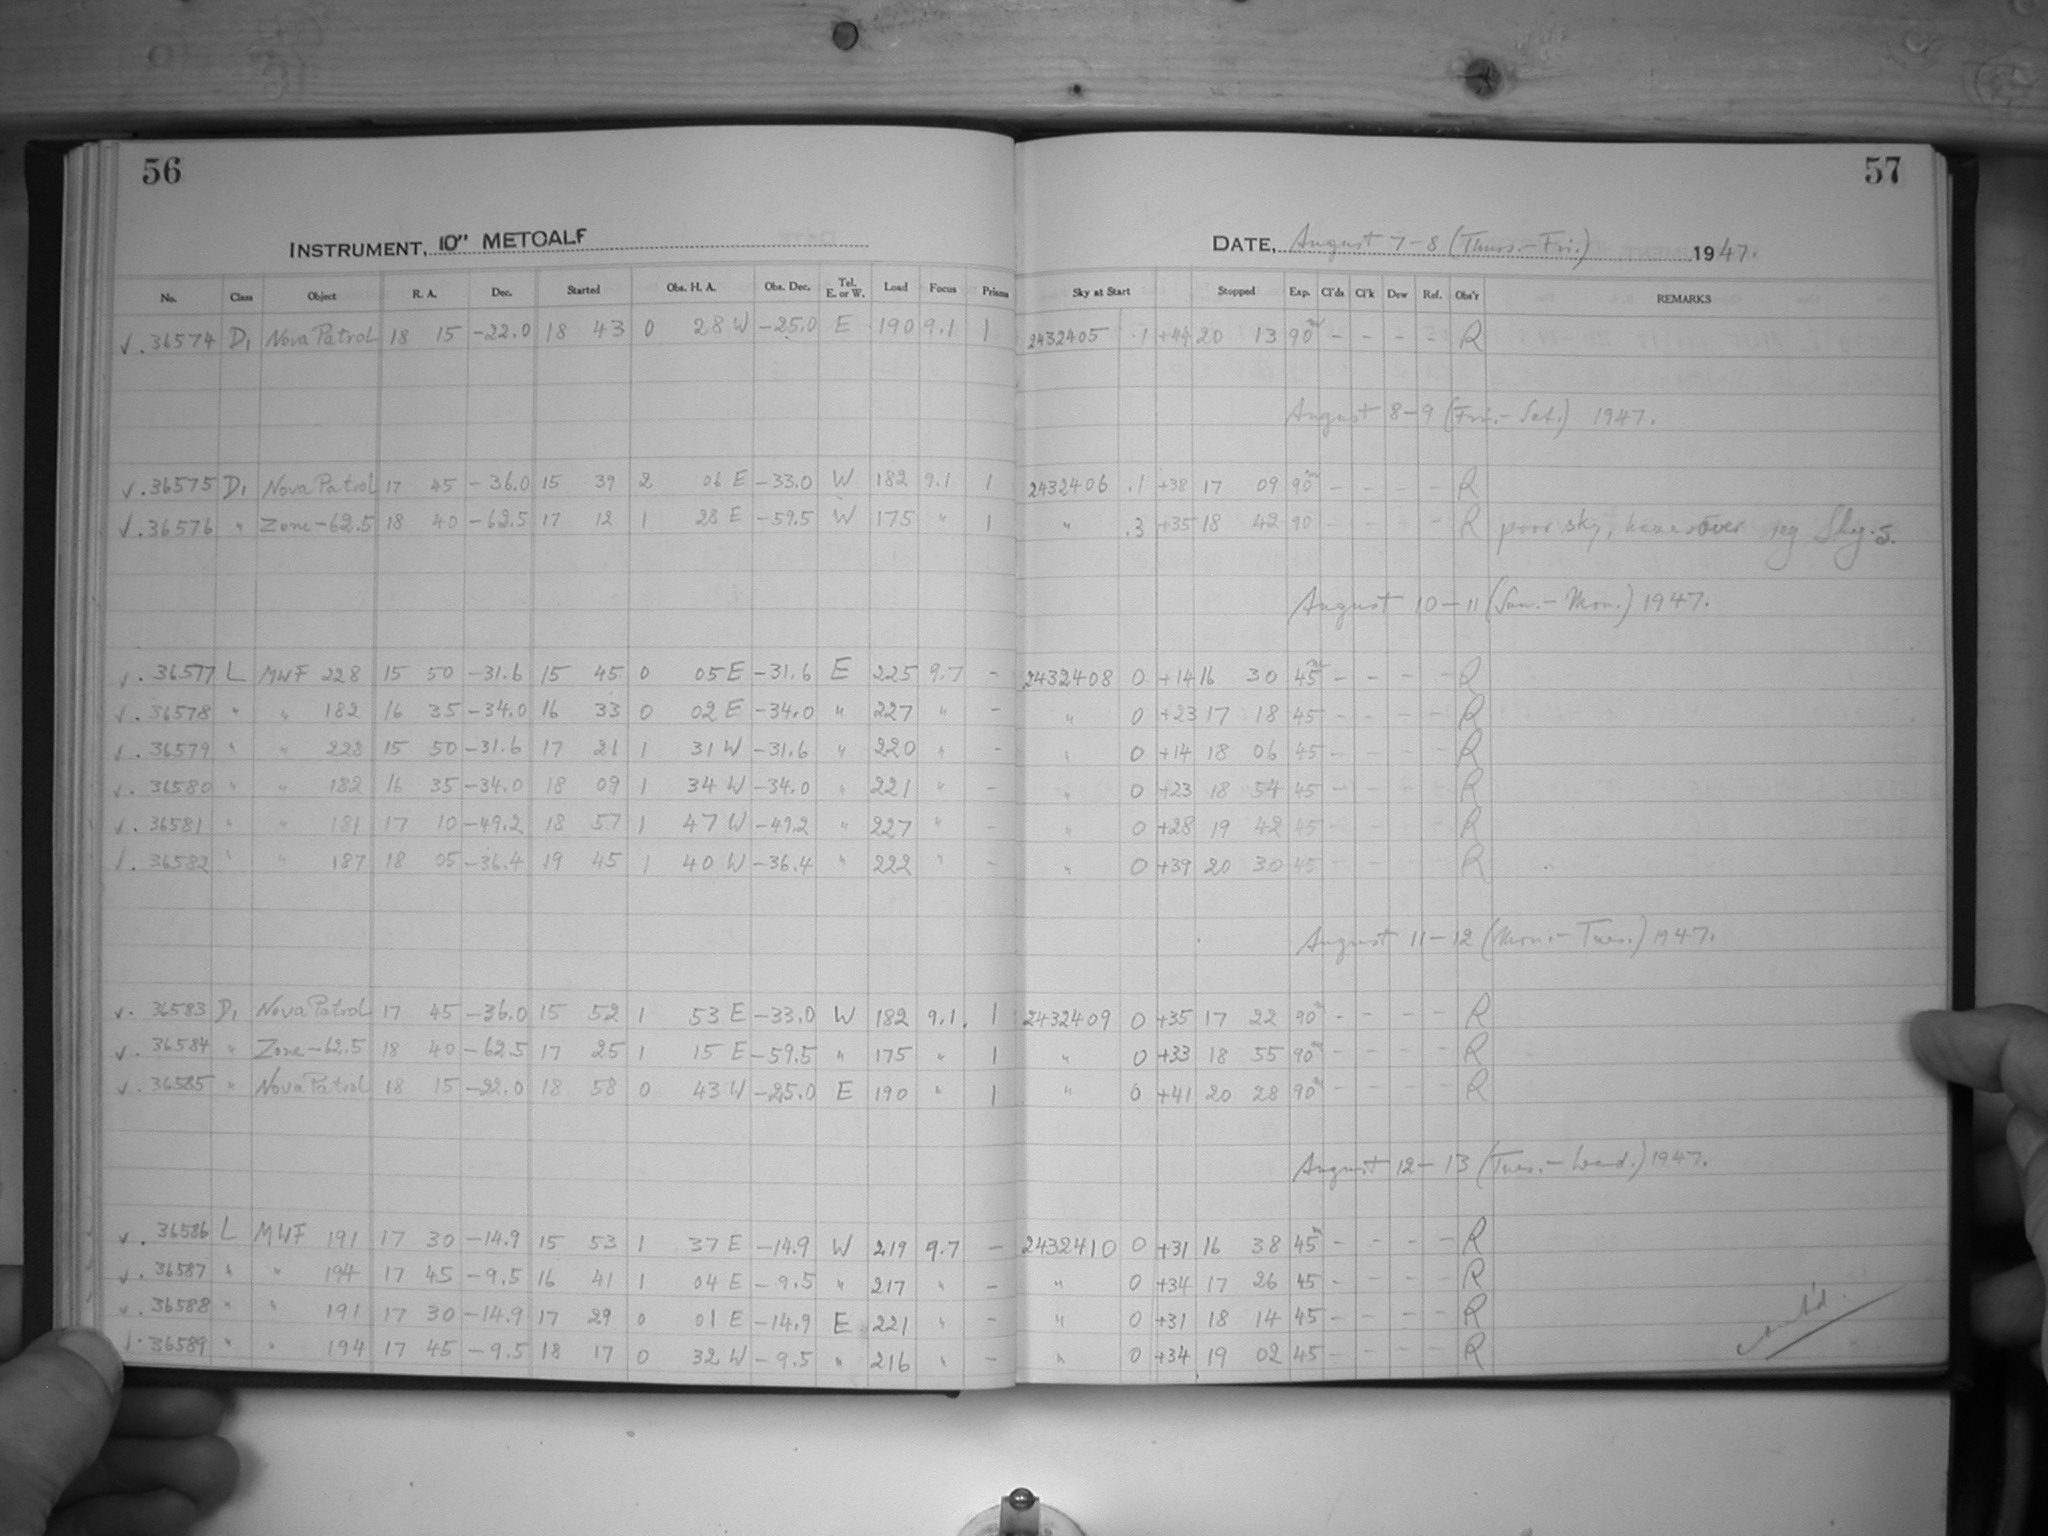 56
INSTRUMENT, 10" METCALF
No. Class Object R. A. Dec. Started Obs. H. A. Obs. Dec. Tel. E. or W. Load Focus Prisms
√ . 36574 D₁ Nova Patrol 18 15 -22.0 18 43 0 28 W -25.0 E 190 9.1 1
√ . 36575 D₁ Nova Patrol 17 45 -36.0 15 39 2 06 E -33.0 W 182 9.1 1
√ . 36576 " Zone -62.5 18 40 -62.5 17 12 1 28 E -59.5 W 175 " 1
√ . 36577 L MWF 228 15 50 -31.6 15 45 0 05 E -31.6 E 225 9.7 -
√ . 36578 " " 182 16 35 -34.0 16 33 0 02 E -34.0 " 227 " -
√ . 36579 " " 228 15 50 -31.6 17 21 1 31 W -31.6 " 220 " -
√ . 36580 " " 182 16 35 -34.0 18 09 1 34 W -34.0 " 221 " -
√ . 36581 " " 181 17 10 -49.2 18 57 1 47 W -49.2 " 227 " -
√ . 36582 " " 187 18 05 -36.4 19 45 1 40 W -36.4 " 222 " -
√ . 36583 D₁ Nova Patrol 17 45 -36.0 15 52 1 53 E -33.0 W 182 9.1. 1
√ . 36584 " Zone -62.5 18 40 -62.5 17 25 1 15 E -59.5 " 175 " 1
√ . 36585 " Nova Patrol 18 15 -22.0 18 58 0 43 W -25.0 E 190 " 1
√ . 36586 L MWF 191 17 30 -14.9 15 53 1 37 E -14.9 W 219 9.7 -
√ . 36587 " " 194 17 45 -9.5 16 41 1 04 E -9.5 " 217 " -
√ . 36588 " " 191 17 30 -14.9 17 29 0 01 E -14.9 E 221 " -
√ . 36589 " " 194 17 45 -9.5 18 17 0 32 W -9.5 " 216 " -
57
DATE, August 7-8 (Thurs.-Fri.) 1947.
Sky at Start Stopped Exp. Cl'ds Cl'k Dew Ref. Obs'r REMARKS
2432405 .1 +44 20 13 90m - - - - R
August 8-9 (Fri.-Sat.) 1947.
2432406 .1 +38 17 09 90m - - - - R
" .3 +35 18 42 90 - - - - R poor sky, haze over
August 10-11 (Sun.-Mon.) 1947.
2432408 0 +14 16 30 45m - - - - R
" 0 +23 17 18 45 - - - - R
" 0 +14 18 06 45 - - - - R
" 0 +23 18 54 45 - - - - R
" 0 +28 19 42 45 - - - - R
" 0 +39 20 30 45 - - - - R
August 11-12 (Mon.-Tues.) 1947.
2432409 0 +35 17 22 90m - - - - R
" 0 +33 18 55 90m - - - - R
" 0 +41 20 28 90m - - - - R
August 12-13 (Tues.-Wed.) 1947.
2432410 0 +31 16 38 45m - - - - R
" 0 +34 17 26 45 - - - - R
" 0 +31 18 14 45 - - - - R
" 0 +34 19 02 45 - - - - R
cont'd.